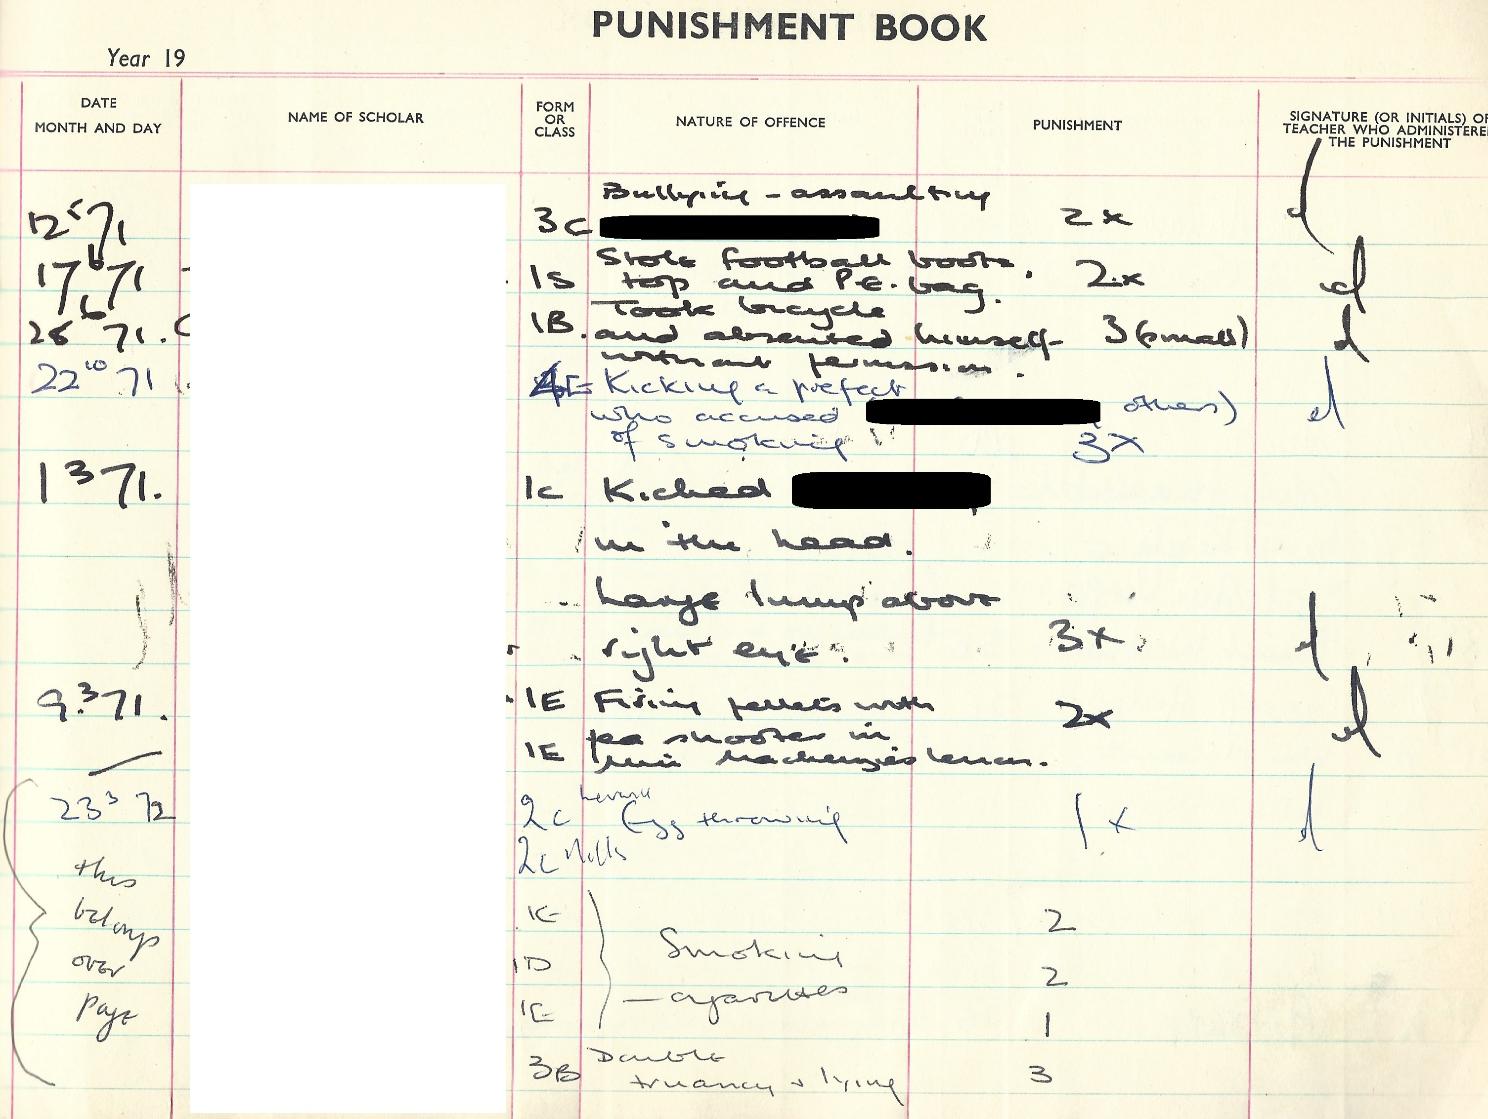 PUNISHMENT BOOK
Year 19
DATE
MONTH AND DAY
NAME OF SCHOLAR
FORM
OR
CLASS
NATURE OF OFFENCE
PUNISHMENT
SIGNATURE (OR INITIALS) OF
TEACHER WHO ADMINISTERE
THE PUNISHMENT
Bullying - assaulting
12 5 71 3C 2x
Stole football boots,
17 6 71 1S top and P.E. bag. 2x
Took bicycle
28 6 71. 1B. and absented himself 3 (small)
without permission.
22 10 71 4E Kicking a prefect
who accused others)
of smoking 3x
1 3 71. 1C Kicked
in the head.
Large lump above
right eye. 3x
9.3 71. 1E Firing pellets with 2x
1E pea shooter in
lesson.
23 3 72 2C Egg throwing 1x
2C
this
belongs
over
page
1E 2
Smoking
1D 2
- cigarettes
1E 1
Double
3B truancy + lying 3